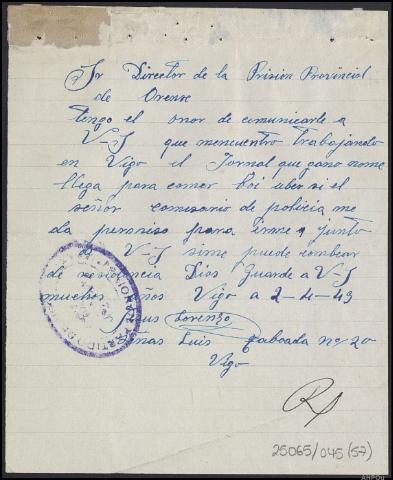 Sr Director de la Prision Provincial
de Orense
tengo el onor de comunicarle a
V-S que mencuentro trabajando
en Vigo el Jornal que gano nome
llega para comer boi uber si el
señor comisario de policia me
da permiso para irme junto
V-S sime puede combear
de residencia Dios Guarde a V-S
muchos años Vigo a 2-4-43
Jesus Lorenzo
Luis Taboada nº 20
Vigo
25065/045 (57)
AHPOu